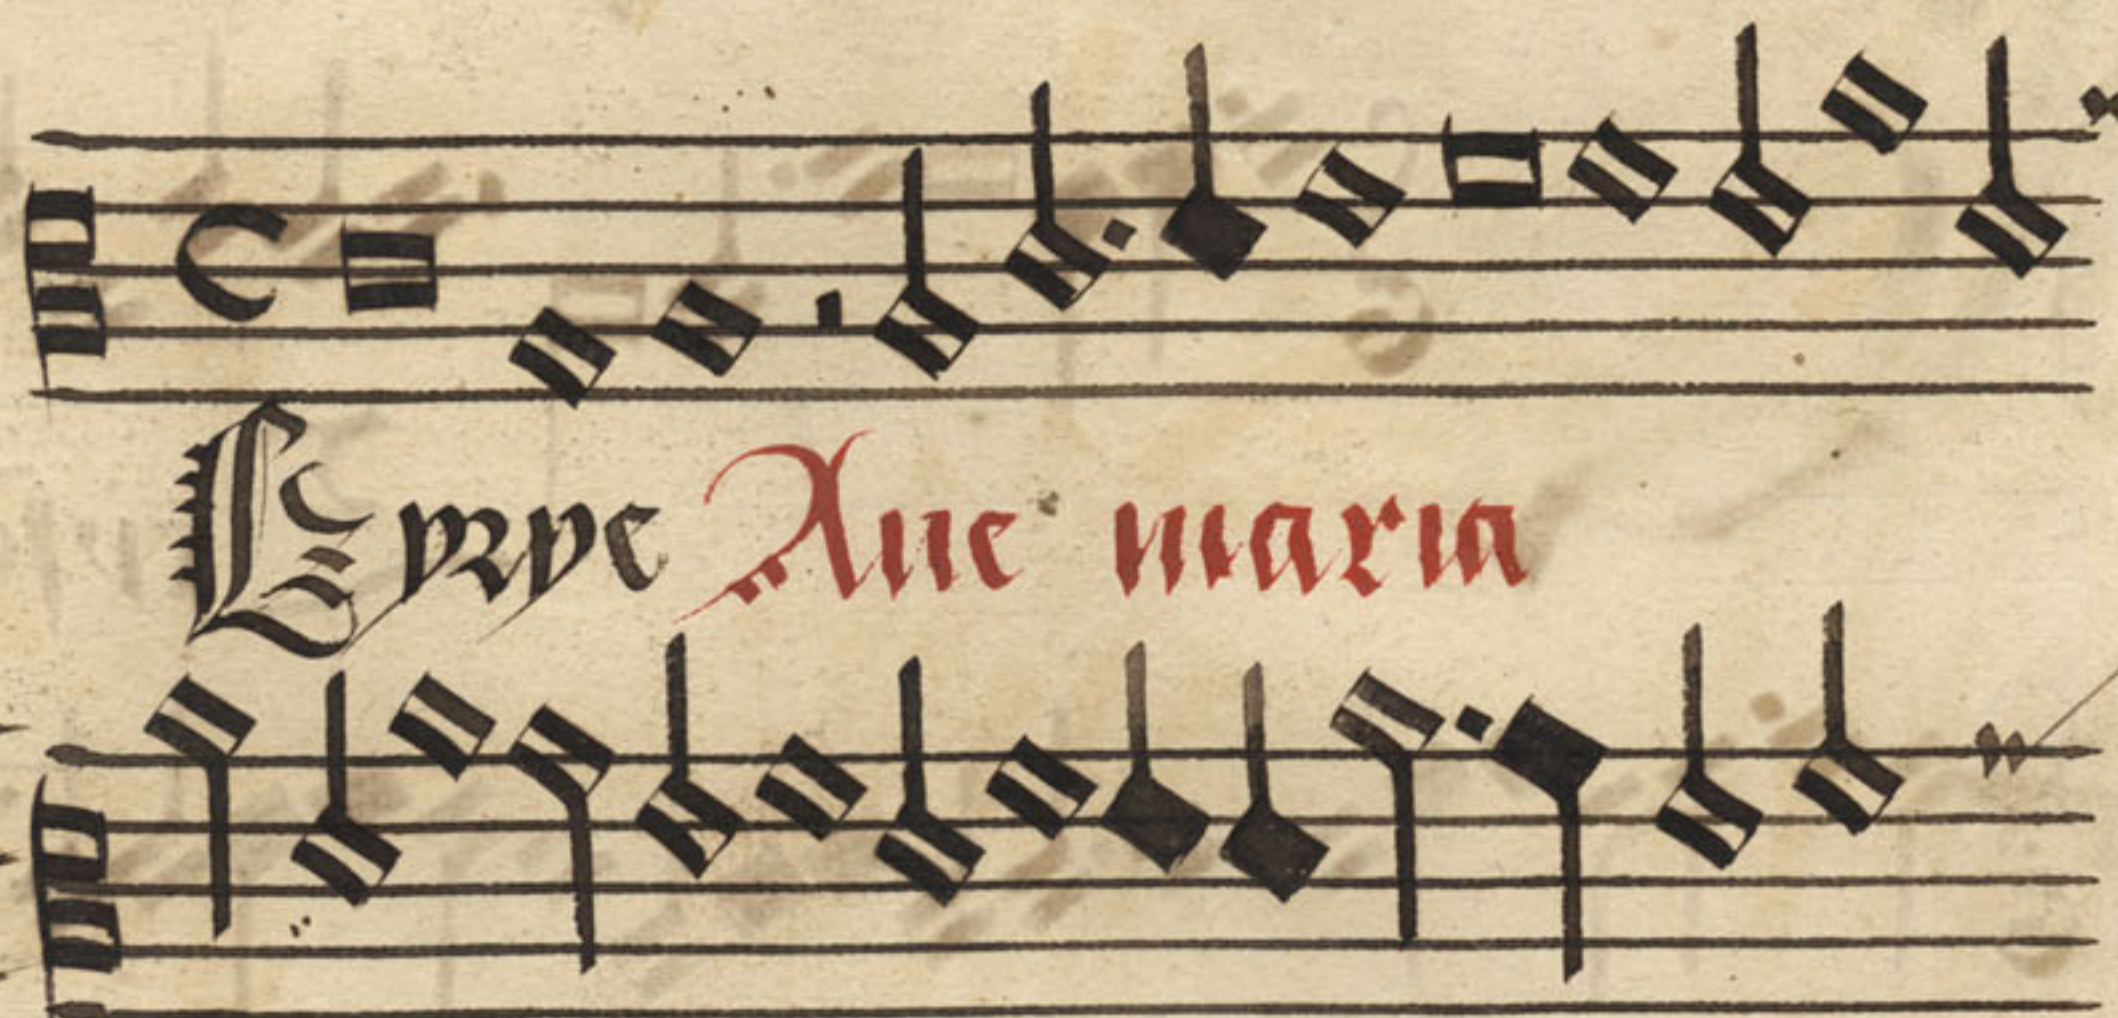 Kyrye Aue maria